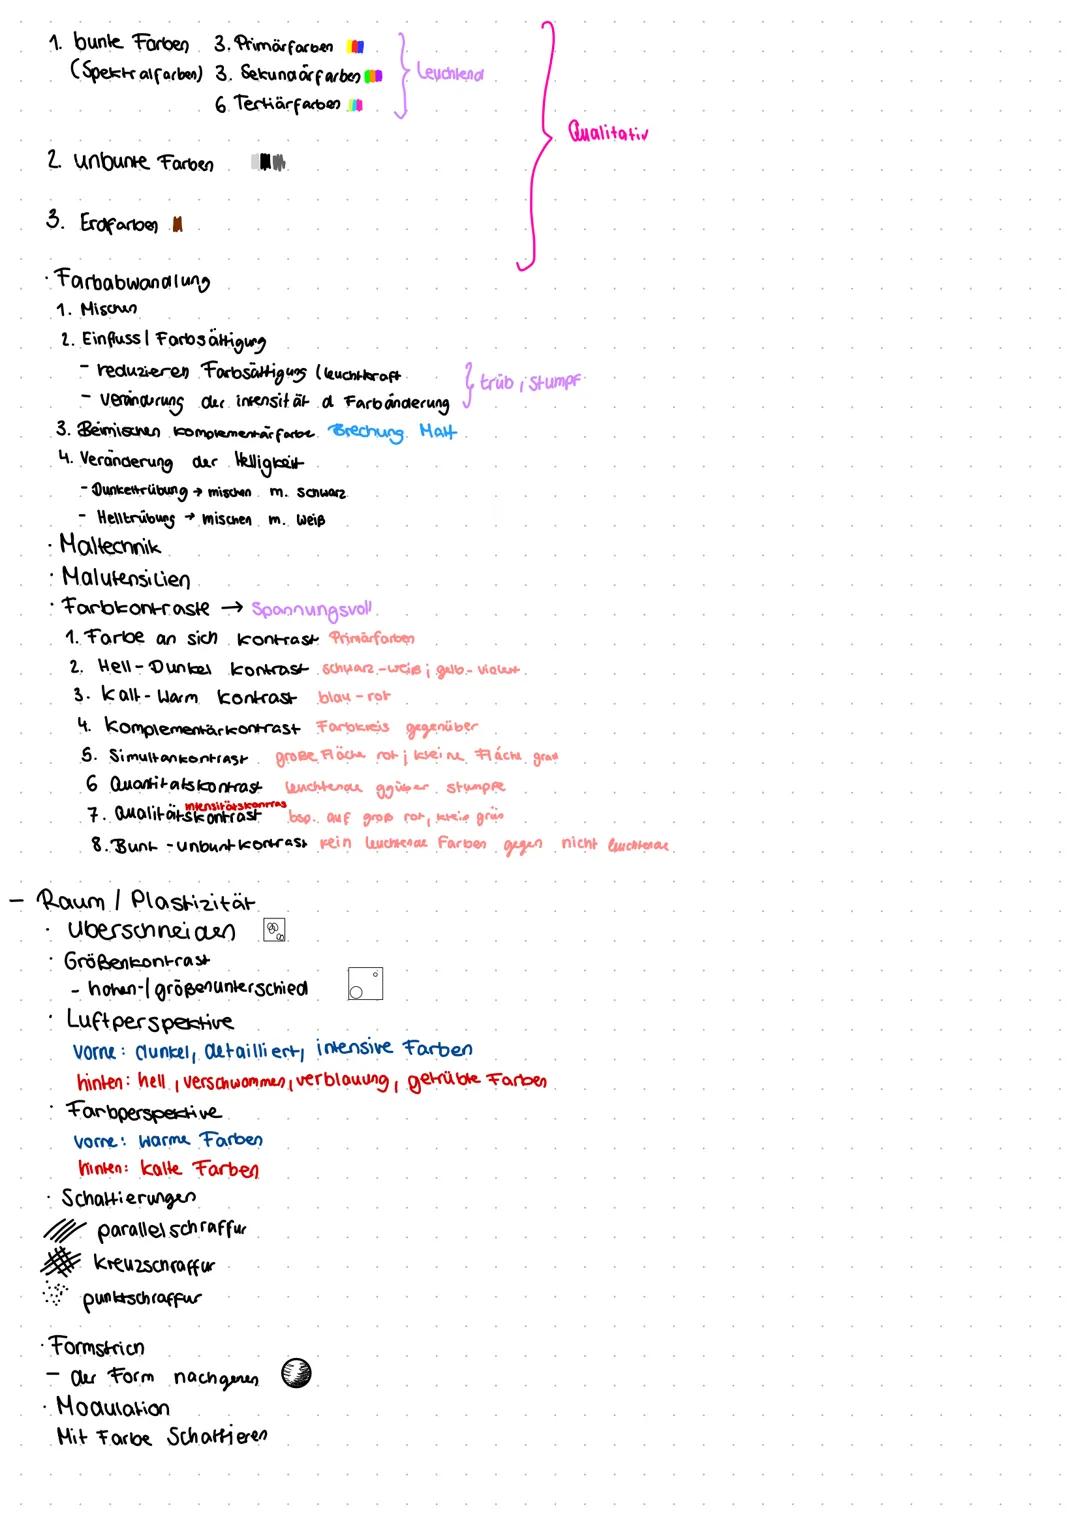 1. bunte Farben 3. Primärfarben
(Spektralfarben) 3. Sekundärfarben
6 Tertiärfarben
Leuchtend
Qualitativ
2. unbunte Farben
3. Erdfarben
· Farbabwandlung
1. Mischen
2. Einfluss | Farbsättigung
- reduzieren Farbsättigung / leuchtkraft
- veränderung der intensität d Farbänderung
trüb, stumpf
3. Beimischen komplementärfarbe Brechung Matt
4. Veränderung der Helligkeit
- Dunkeltrübung → mischen m. schwarz
- Helltrübung → mischen m. weiß
· Maltechnik
· Malutensilien
· Farbkontraste → Spannungsvoll
1. Farbe an sich kontrast Primärfarben
2. Hell-Dunkel kontrast schwarz-weiß; gelb-violett
3. Kalt-Warm kontrast blau-rot
4. Komplementärkontrast Farbkreis gegenüber
5. Simultankontrast große Fläche rot; kleine Fläche grau
6 Quantitätskontrast leuchtende ggüber stumpfe
intensitätskontras
7. Qualitätskontrast bsp. auf groß rot, klein grün
8. Bunt-unbuntkontrast rein leuchtende Farben gegen nicht leuchtende
- Raum / Plastizität
· Überschneiden
· Größenkontrast
- höhen-/größenunterschied
· Luftperspektive
vorne: dunkel, detailliert, intensive Farben
hinten: hell, verschwommen, verblauung, getrübte Farben
· Farbperspektive
vorne: warme Farben
hinten: kalte Farben
· Schattierungen
parallelschraffur
kreuzschraffur
punktschraffur
· Formstrich
- der Form nachgehen
· Modulation
Mit Farbe Schattieren